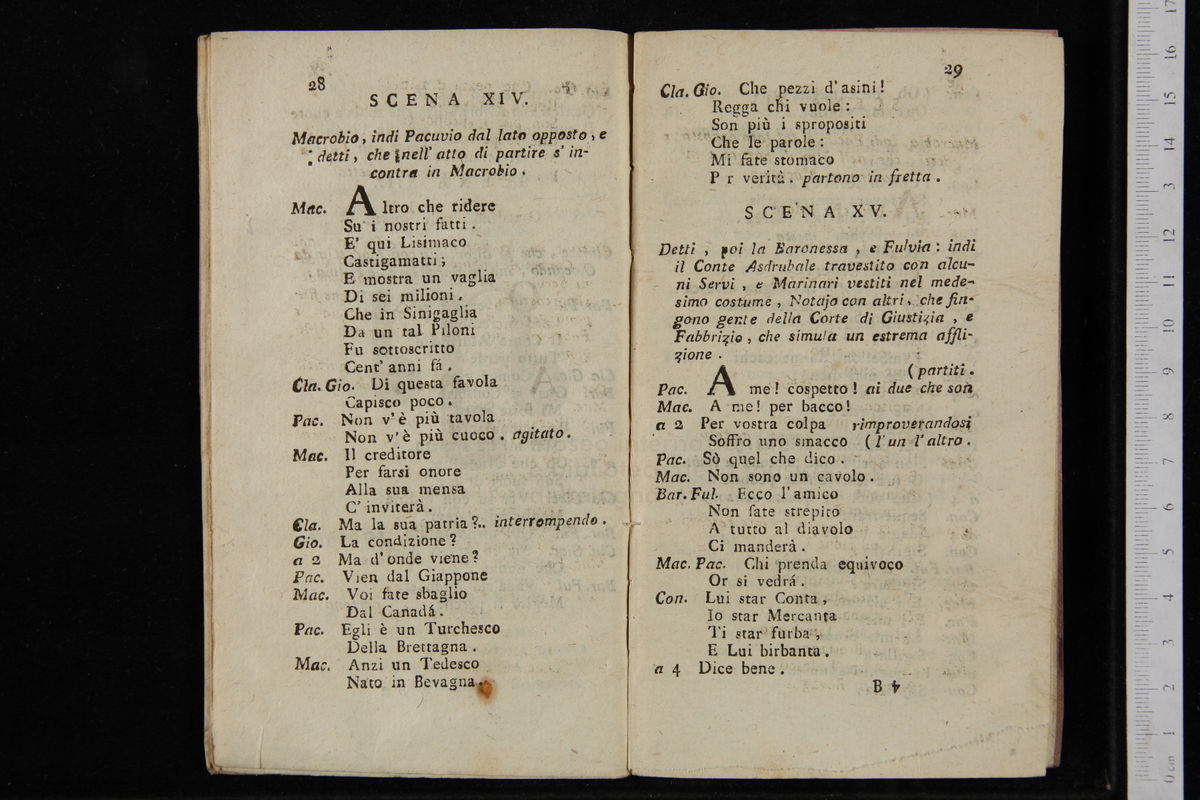 28
SCENA XIV.
Macrobio, indi Pacuvio dal lato opposto, e
detti, che nell' atto di partire s' in-
contra in Macrobio.
Mac. Altro che ridere
Su i nostri fatti.
E' qui Lisimaco
Castigamatti;
E mostra un vaglia
Di sei milioni,
Che in Sinigaglia
Da un tal Piloni
Fu sottoscritto
Cent' anni fà.
Cla. Gio. Di questa favola
Capisco poco.
Pac. Non v' è più tavola
Non v' è più cuoco. agitato.
Mac. Il creditore
Per farsi onore
Alla sua mensa
C' inviterà.
Cla. Ma la sua patria?.. interrompendo.
Gio. La condizione?
a 2 Ma d' onde viene?
Pac. Vien dal Giappone
Mac. Voi fate sbaglio
Dal Canadá.
Pac. Egli è un Turchesco
Della Brettagna.
Mac. Anzi un Tedesco
Nato in Bevagna.
29
Cla. Gio. Che pezzi d' asini!
Regga chi vuole:
Son più i spropositi
Che le parole:
Mi fate stomaco
P r verità. partono in fretta.
SCENA XV.
Detti, poi la Baronessa, e Fulvia: indi
il Conte Asdrubale travestito con alcu-
ni Servi, e Marinari vestiti nel mede-
simo costume, Notajo con altri, che fin-
gono gente della Corte di Giustizia, e
Fabbrizio, che simula un estrema affli-
zione.
(partiti.
Pac. A me! cospetto! ai due che son
Mac. A me! per bacco!
a 2 Per vostra colpa rimproverandosi
Soffro uno smacco (l' un l' altro.
Pac. Sò quel che dico.
Mac. Non sono un cavolo.
Bar. Ful. Ecco l' amico
Non fate strepito
A tutto al diavolo
Ci manderà.
Mac. Pac. Chi prenda equivoco
Or si vedrá.
Con. Lui star Conta,
Io star Mercanta
Ti star furba,
E Lui birbanta.
a 4 Dice bene.
B 4
17
16
15
14
13
12
11
10
9
8
7
6
5
4
3
2
1
0 cm